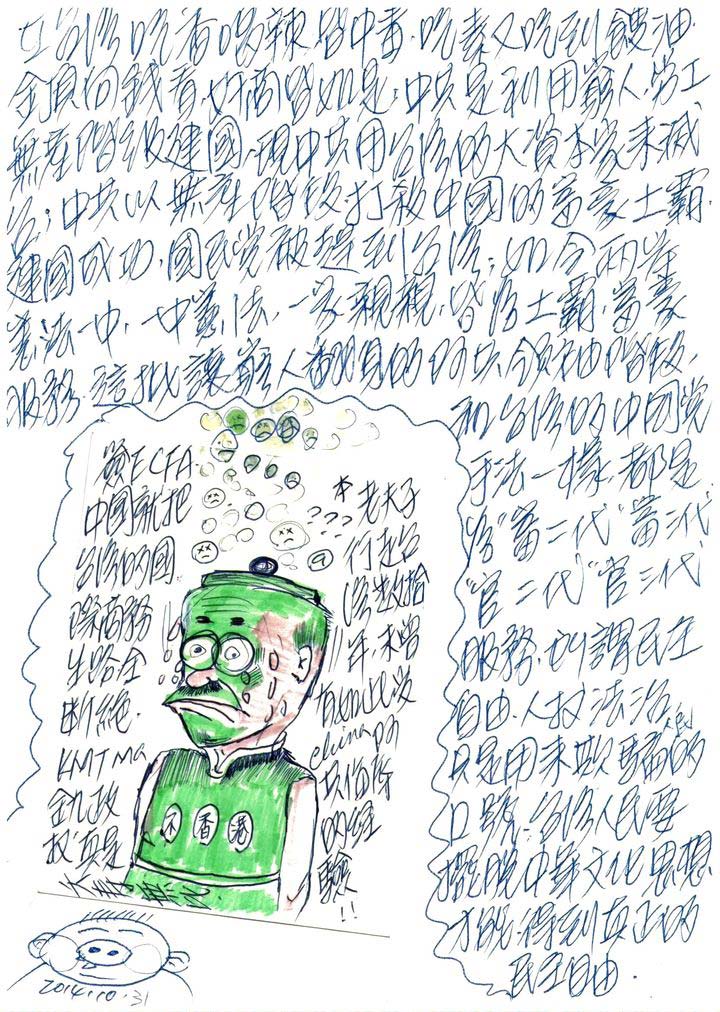 在台灣吃香喝辣皆中毒,吃素又吃到餿油
全頂向錢看,奸商皆如是,中共是利用窮人、勞工
無產階級建國,現中共用台灣的大資本家來滅
台;中共以無產階級打殺中國的富豪土霸,
建國成功,國民党被趕到台灣;如今兩岸
憲法一中,一中憲法,一家親親,皆為土霸、富豪
服務,這批讓窮人翻身的中共領袖階級,
和台灣的中國党
手法一樣,都是
為"富二代""富三代"
"官二代""官三代"
服務,所謂民主
自由、人权、法治,
只是用來欺騙人民的
口號,台灣人民要
擺脫中華文化思想,
才能得到真正的
民主自由.
簽ECFA
中國就把
台灣的國
際商務
生路全
斷絕,
KMT Ma
金九政
权真是
???
老夫子
行走台
灣數拾
年,未曾
有如此沒
china的
共伯
的經
驗!!
不香港
2014.10.31